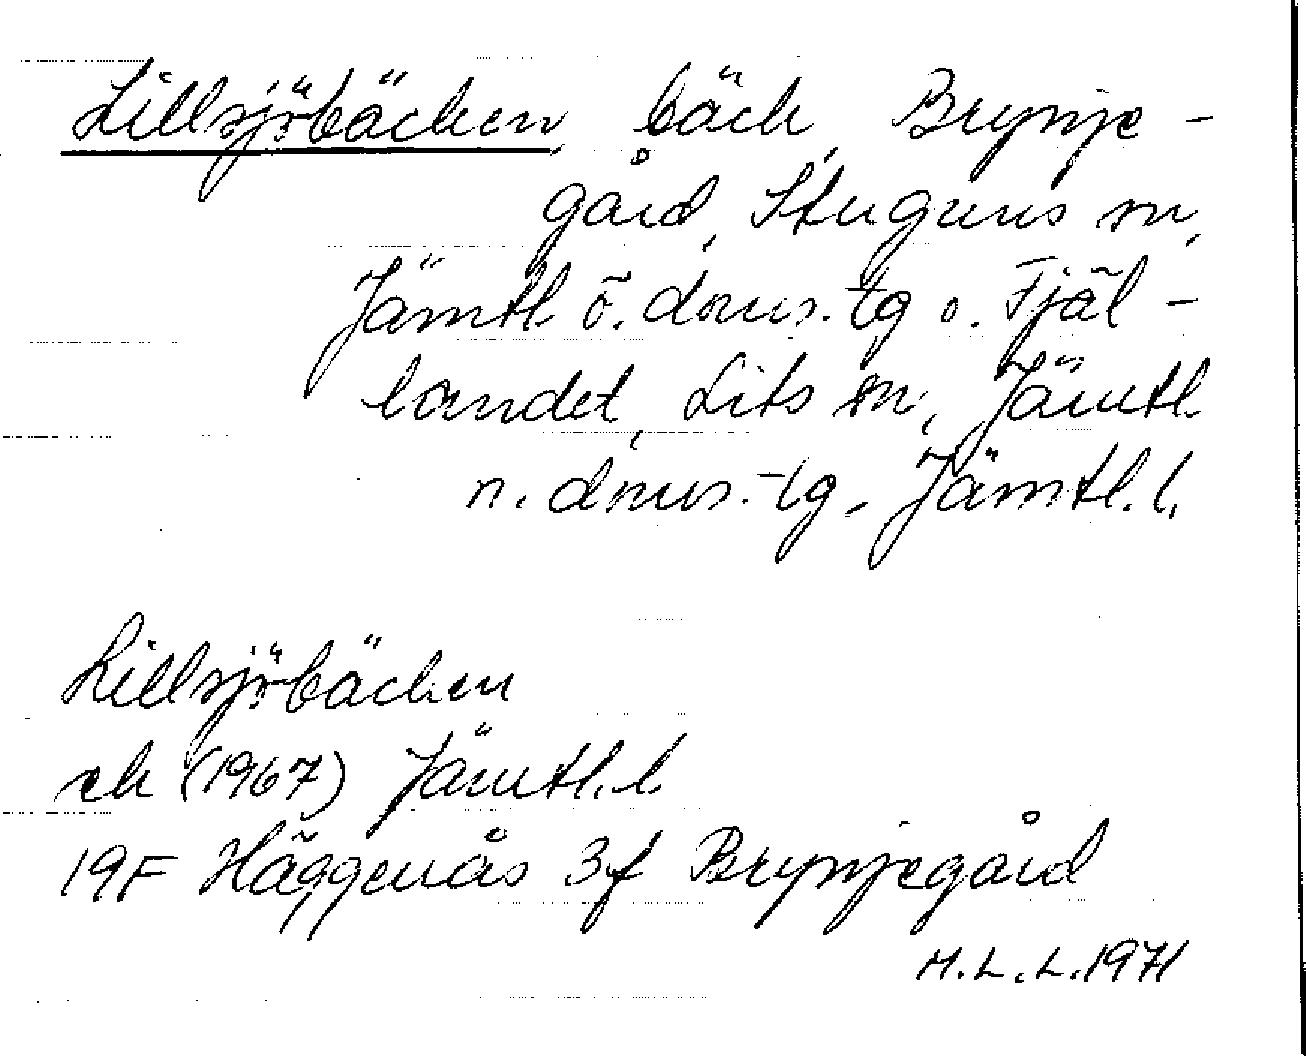 Lillsjöbäcken, bäck, Brynje-
gård, Stuguns sn,
Jämtl. ö. doms.-tg o. Fjäl-
landet, Lits sn, Jämtl.
n. doms.-tg, Jämtl. l.
Lillsjöbäcken
ek (1967) Jämtl. l.
19F Häggenås 3f Brynjegård
M.L.L. 1971